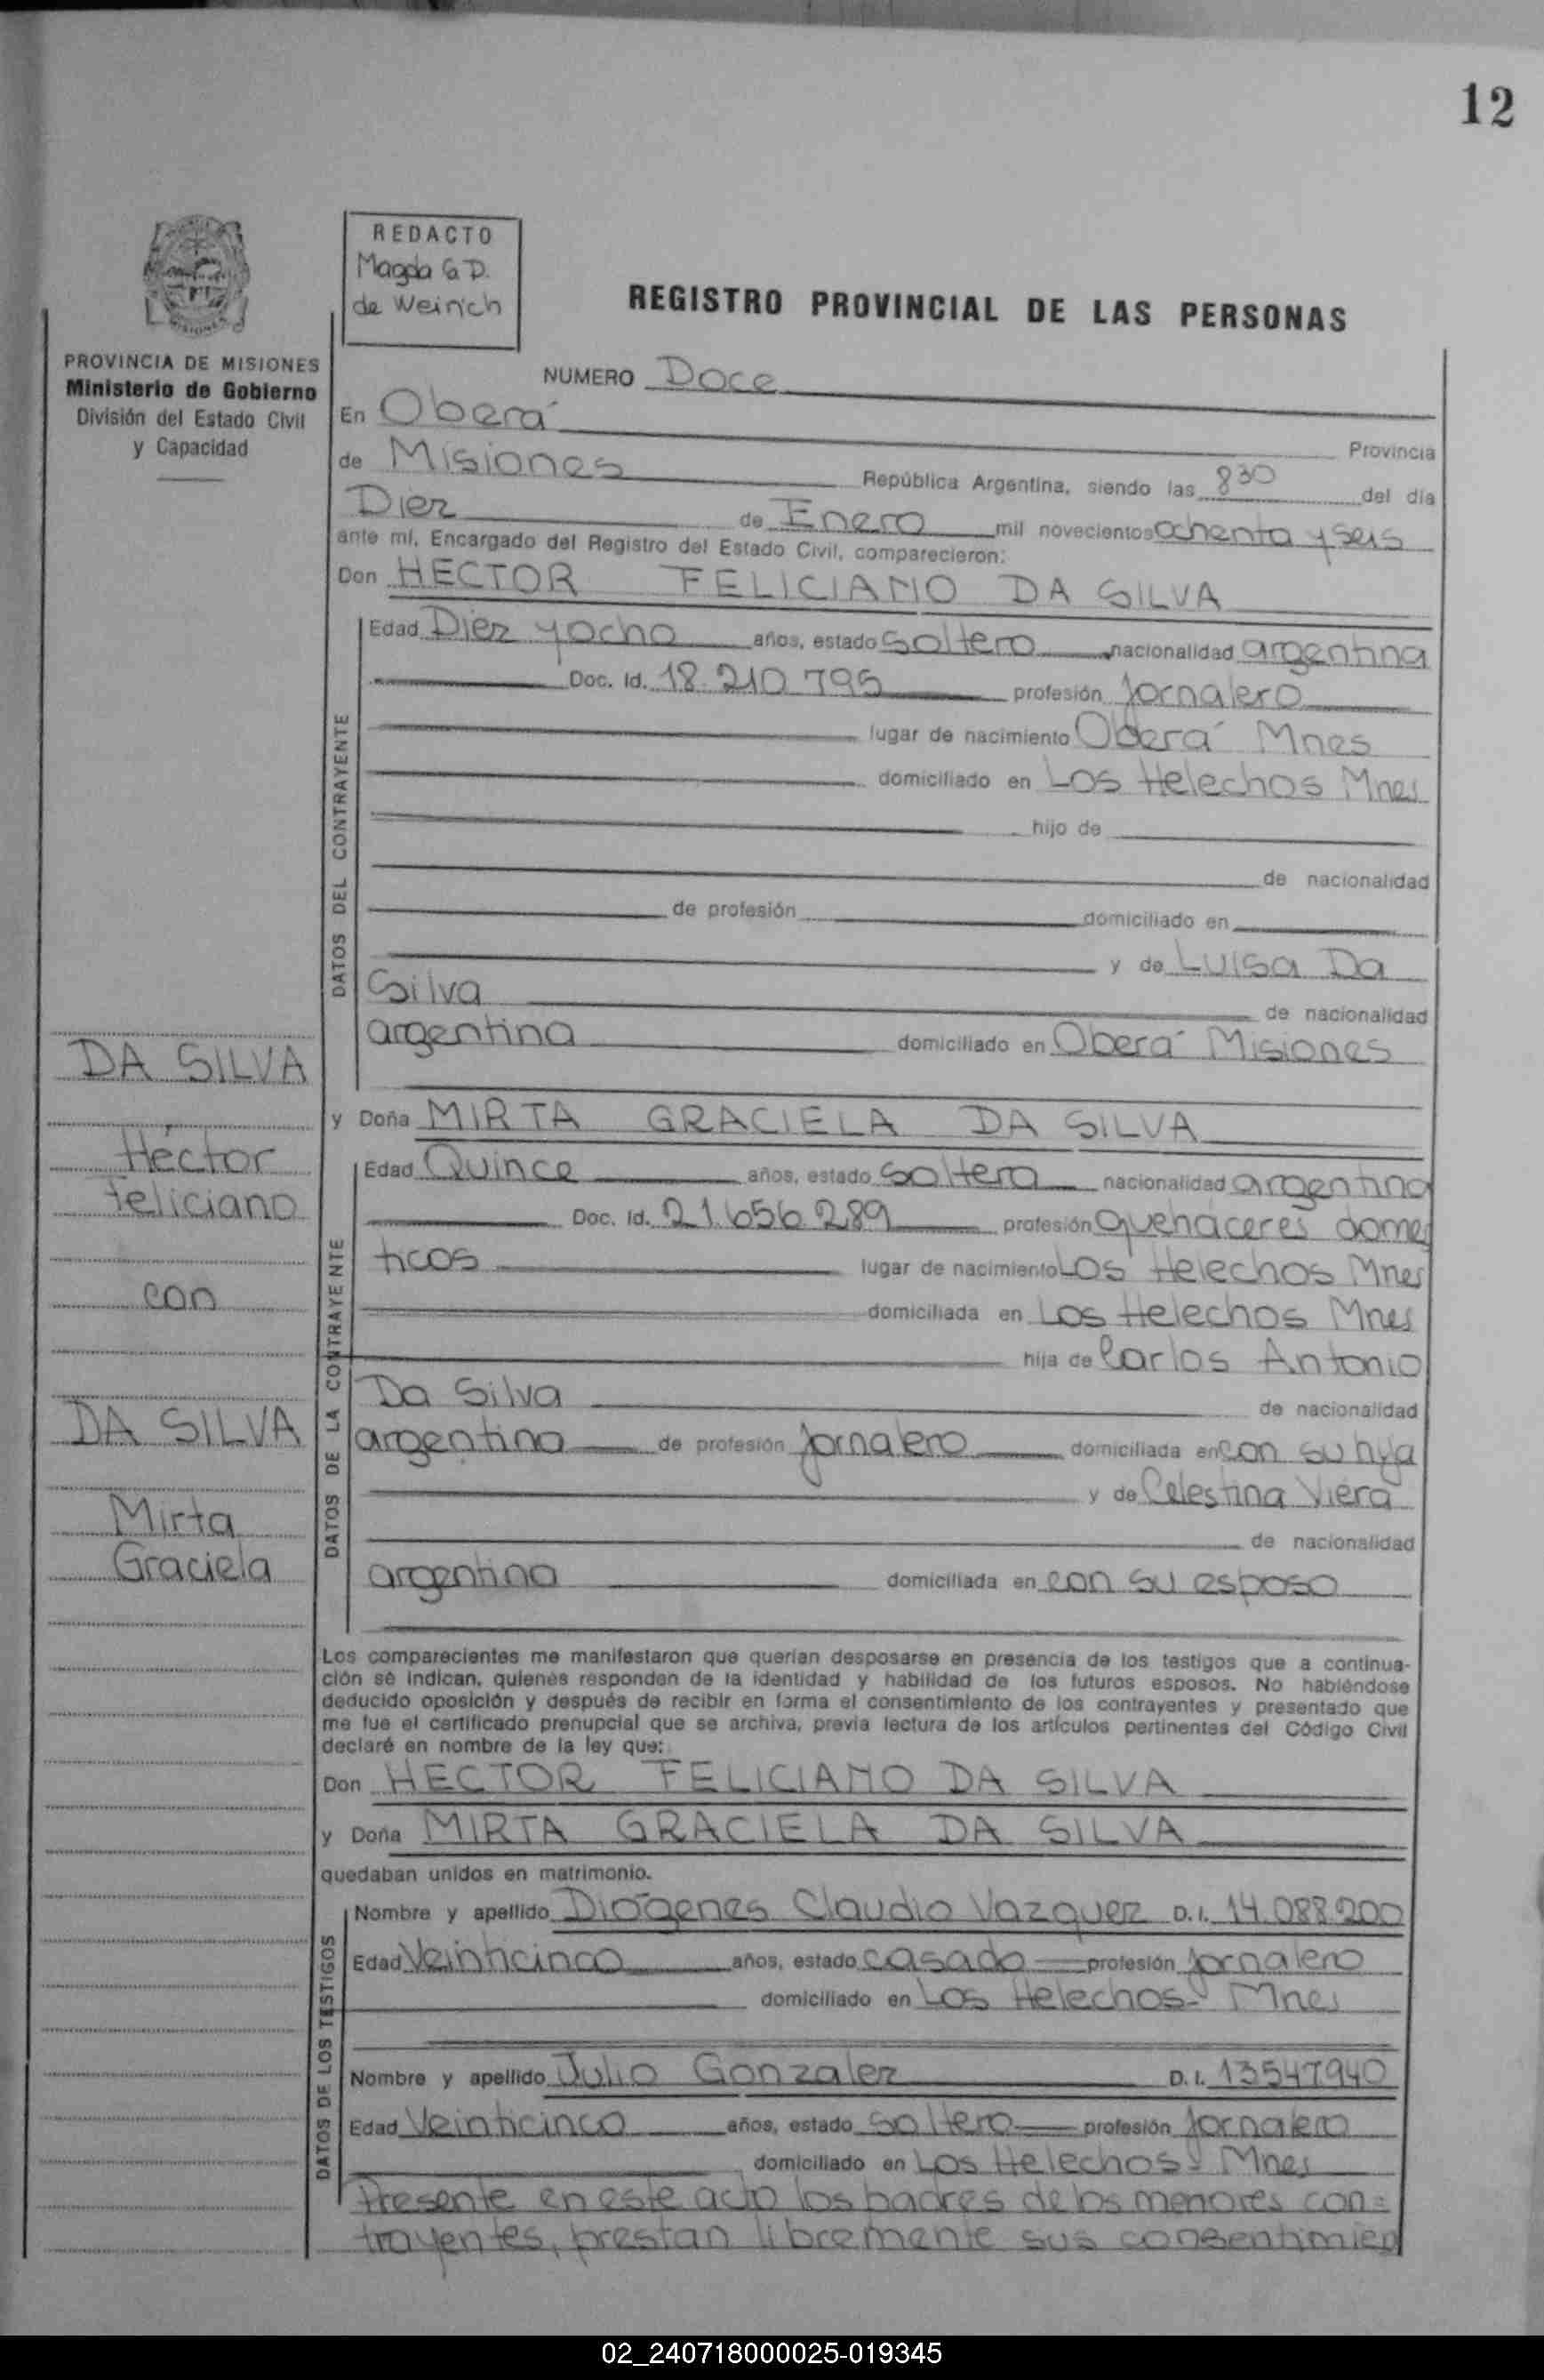 12
REDACTO
Magda G. D.
de Weirich
REGISTRO PROVINCIAL DE LAS PERSONAS
PROVINCIA DE MISIONES
Ministerio de Gobierno
División del Estado Civil
y Capacidad
NUMERO Doce
En Oberá Provincia
de Misiones República Argentina, siendo las 830 del día
Diez de Enero mil novecientos ochenta y seis
ante mí, Encargado del Registro del Estado Civil, comparecieron:
Don HECTOR FELICIANO DA SILVA
DATOS DEL CONTRAYENTE
Edad Diez y ocho años, estado soltero nacionalidad argentina
Doc. Id. 18.210.795 profesión Jornalero
lugar de nacimiento Oberá Mnes
domiciliado en Los Helechos Mnes
hijo de
de nacionalidad
de profesión domiciliado en
y de Luisa Da
Silva de nacionalidad
argentina domiciliado en Oberá Misiones
y Doña MIRTA GRACIELA DA SILVA
DATOS DE LA CONTRAYENTE
Edad Quince años, estado soltera nacionalidad argentina
Doc. Id. 21.656.289 profesión quehaceres domes
ticos lugar de nacimiento Los Helechos Mnes
domiciliada en Los Helechos Mnes
hija de Carlos Antonio
Da Silva de nacionalidad
argentina de profesión Jornalero domiciliada en con su hija
y de Celestina Viera
de nacionalidad
argentina domiciliada en con su esposo
DA SILVA
Héctor
Feliciano
con
DA SILVA
Mirta
Graciela
Los comparecientes me manifestaron que querían desposarse en presencia de los testigos que a continua-
ción se indican, quienes responden de la identidad y habilidad de los futuros esposos. No habiéndose
deducido oposición y después de recibir en forma el consentimiento de los contrayentes y presentado que
me fue el certificado prenupcial que se archiva, previa lectura de los artículos pertinentes del Código Civil
declaré en nombre de la ley que:
Don HECTOR FELICIANO DA SILVA
y Doña MIRTA GRACIELA DA SILVA
quedaban unidos en matrimonio.
DATOS DE LOS TESTIGOS
Nombre y apellido Diógenes Claudio Vazquez D. I. 14.088.200
Edad Veinticinco años, estado casado profesión Jornalero
domiciliado en Los Helechos- Mnes
Nombre y apellido Julio Gonzalez D. I. 13547940
Edad Veinticinco años, estado soltero profesión Jornalero
domiciliado en Los Helechos- Mnes
Presente en este acto los padres de los menores con=
trayentes, prestan libremente sus consentimien
02_240718000025-019345